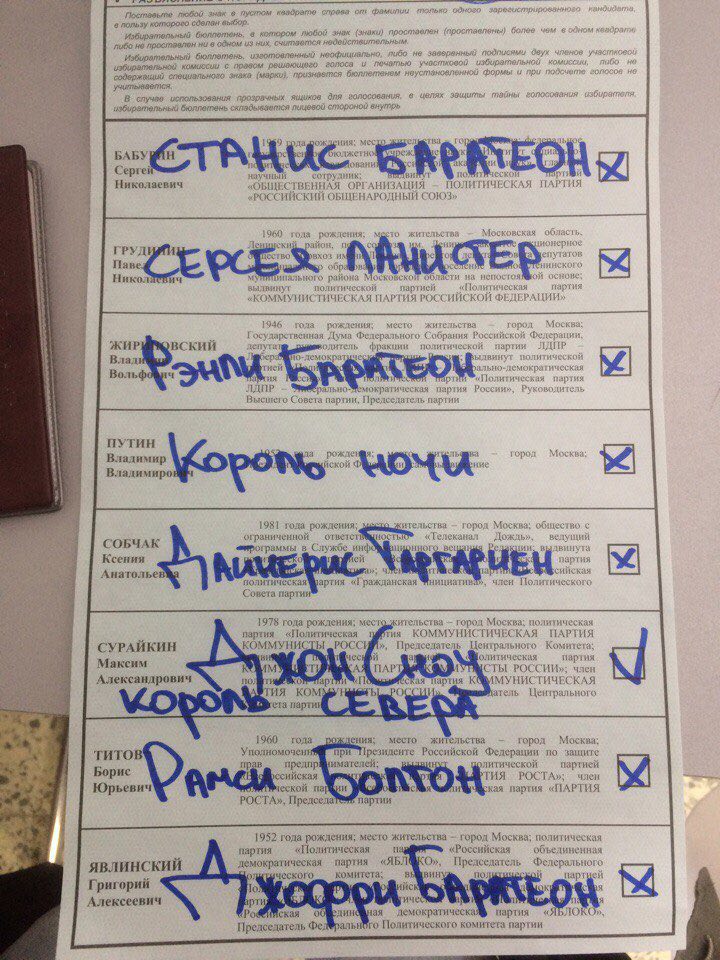 Поставьте любой знак в пустом квадрате справа от фамилии только одного зарегистрированного кандидата,
в пользу которого сделан выбор.
Избирательный бюллетень, в котором любой знак (знаки) проставлен (проставлены) более чем в одном квадрате
либо не проставлен ни в одном из них, считается недействительным.
Избирательный бюллетень, изготовленный неофициально, либо не заверенный подписями двух членов участковой
избирательной комиссии с правом решающего голоса и печатью участковой избирательной комиссии, либо не
содержащий специального знака (марки), признается бюллетенем неустановленной формы и при подсчете голосов не
учитывается.
В случае использования прозрачных ящиков для голосования, в целях защиты тайны голосования избирателя,
избирательный бюллетень складывается лицевой стороной внутрь
БАБУРИН
Сергей
Николаевич
СТАНИС БАРАТЕОН
1959 года рождения; место жительства – город
научный сотрудник; выдвинут политической партией
«ОБЩЕСТВЕННАЯ ОРГАНИЗАЦИЯ – ПОЛИТИЧЕСКАЯ ПАРТИЯ
«РОССИЙСКИЙ ОБЩЕНАРОДНЫЙ СОЮЗ»
ГРУДИНИН
Павел
Николаевич
СЕРСЕЯ ЛАНИСТЕР
1960 года рождения; место жительства – Московская область,
Ленинский район,
муниципального района Московской области на непостоянной основе;
выдвинут политической партией «Политическая партия
«КОММУНИСТИЧЕСКАЯ ПАРТИЯ РОССИЙСКОЙ ФЕДЕРАЦИИ»
ЖИРИНОВСКИЙ
Владимир
Вольфович
РЭНЛИ БАРАТЕОН
1946 года рождения; место жительства – город Москва;
Государственная Дума Федерального Собрания Российской Федерации,
депутат, руководитель фракции политической партии ЛДПР –
ЛДПР – Либерально-демократическая партия России», Руководитель
Высшего Совета партии, Председатель партии
ПУТИН
Владимир
Владимирович
КОРОЛЬ НОЧИ
1952 года рождения; место жительства – город Москва;
СОБЧАК
Ксения
Анатольевна
ДАЙНЕРИС ТАРГАРИЕН
1981 года рождения; место жительства – город Москва; общество с
ограниченной ответственностью «Телеканал Дождь», ведущий
программы в Службе информационного вещания Редакции; выдвинута
политическая партия «Гражданская инициатива», член Политического
Совета партии
СУРАЙКИН
Максим
Александрович
ДЖОН СНОУ
КОРОЛЬ СЕВЕРА
1978 года рождения; место жительства – город Москва; политическая
партия «Политическая партия КОММУНИСТИЧЕСКАЯ ПАРТИЯ
КОММУНИСТЫ РОССИИ», Председатель Центрального Комитета;
ТИТОВ
Борис
Юрьевич
РАМСИ БОЛТОН
1960 года рождения; место жительства – город Москва;
Уполномоченный при Президенте Российской Федерации по защите
прав предпринимателей; выдвинут политической партией
РОСТА», Председатель партии
ЯВЛИНСКИЙ
Григорий
Алексеевич
ДЖОФФРИ БАРАТЕОН
1952 года рождения; место жительства – город Москва; политическая
партия «Политическая партия «Российская объединенная
демократическая партия «ЯБЛОКО», Председатель Федерального
Политического комитета; выдвинут политической партией
«Российская объединенная демократическая партия «ЯБЛОКО»,
Председатель Федерального Политического комитета партии